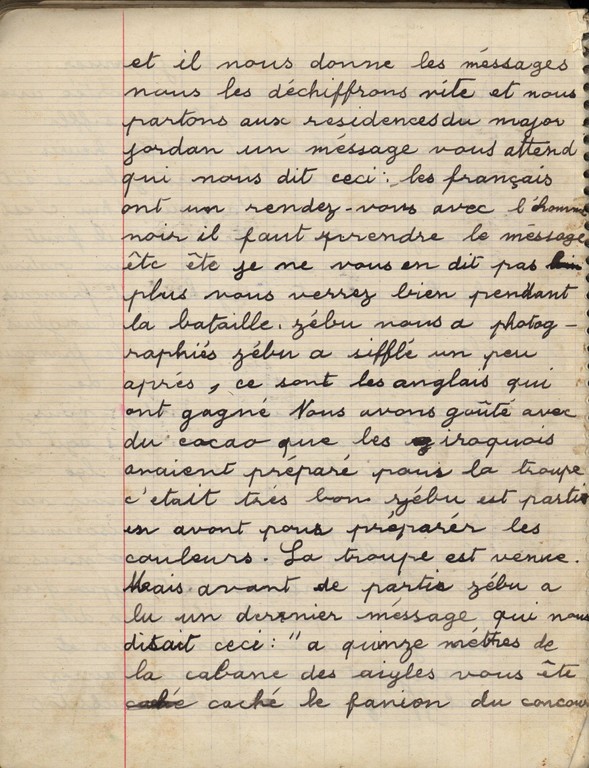 et il nous donne les méssages
nous les déchiffrons vite et nous
partons aux residences du major
jordan un méssage vous attend
qui nous dit ceci : les français
ont un rendez-vous avec l'homme
noir il faut prendre le méssage
êtc ête je ne vous en dit pas
plus vous verrez bien pendant
la bataille. zébu nous a photog-
raphiés zébu a sifflé un peu
aprés, ce sont les anglais qui
ont gagné Nous avons goûté avec
du cacao que les iroquois
avaient préparé pour la troupe
c'etait trés bon zébu est partie
en avant pour préparér les
couleurs. La troupe est venue.
Mais avant de partir zébu a
lu un dernier méssage qui nous
disait ceci : "a quinze métres de
la cabane des aigles vous ête
caché le fanion du concour